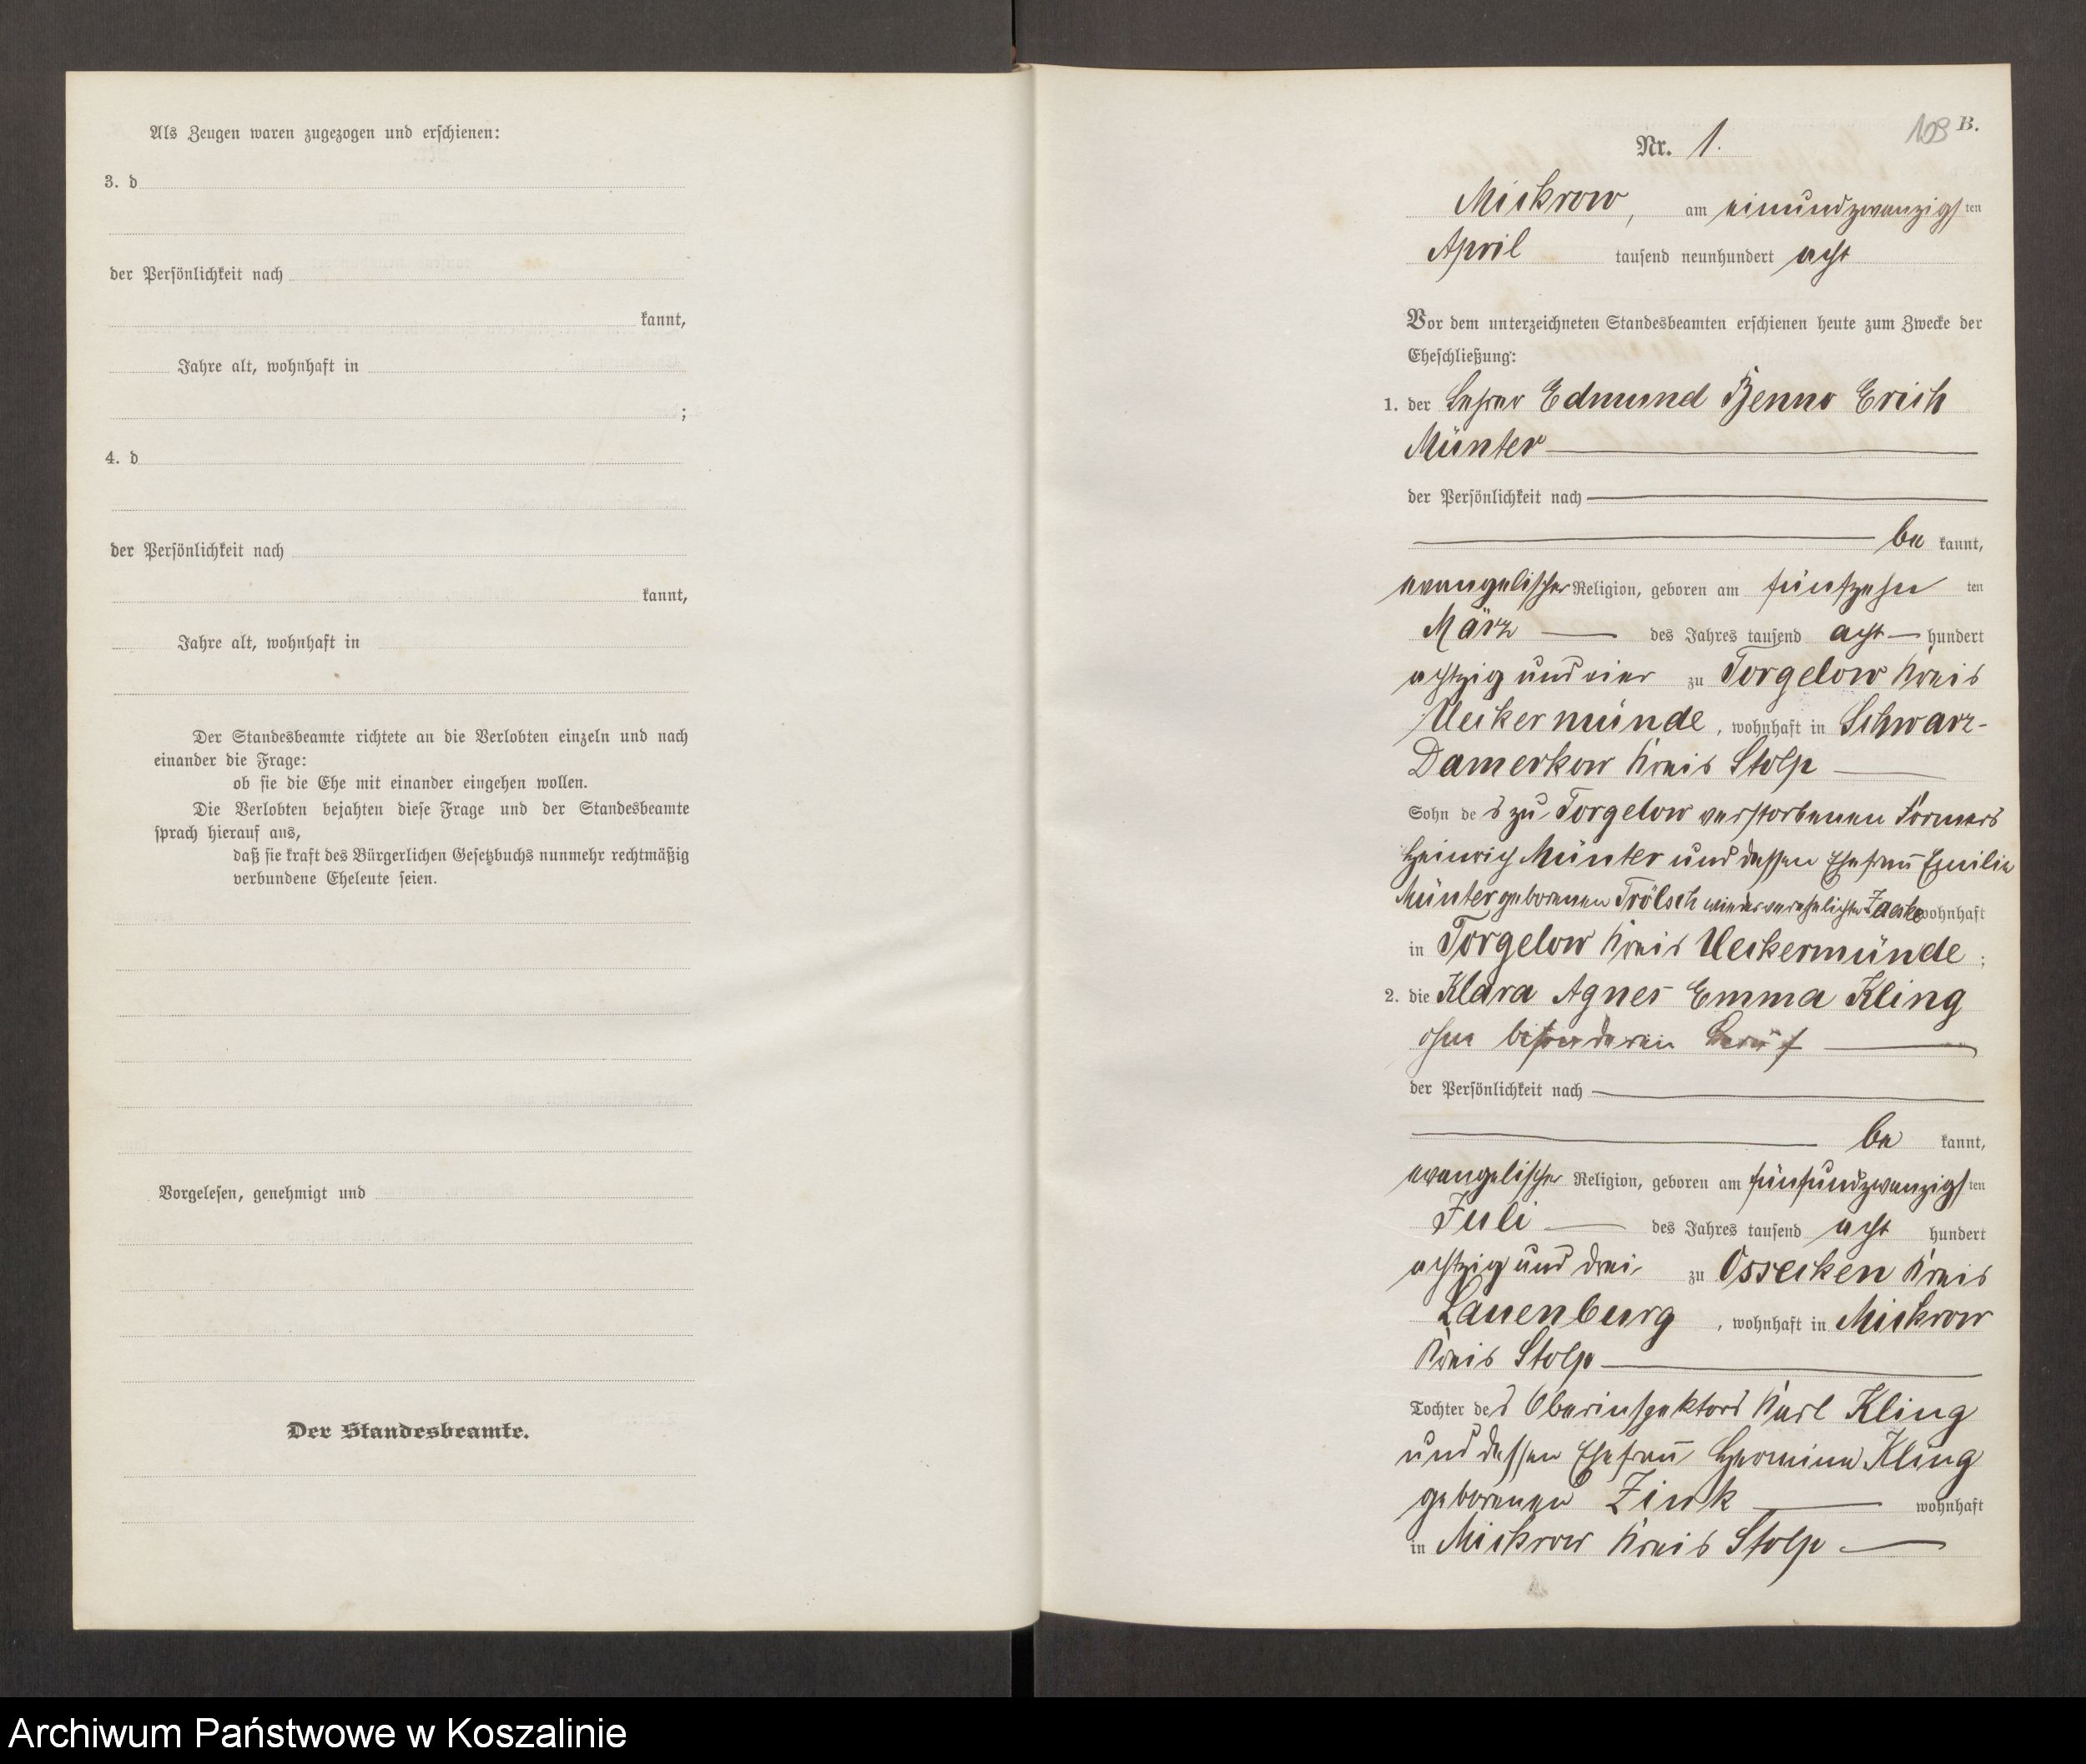 Als Zeugen waren zugezogen und erschienen:
3. d
der Persönlichkeit nach
kannt,
Jahre alt, wohnhaft in
;
4. d
der Persönlichkeit nach
kannt,
Jahre alt, wohnhaft in
Der Standesbeamte richtete an die Verlobten einzeln und nach
einander die Frage:
ob sie die Ehe mit einander eingehen wollen.
Die Verlobten bejahten diese Frage und der Standesbeamte
sprach hierauf aus,
daß sie kraft des Bürgerlichen Gesetzbuchs nunmehr rechtmäßig
verbundene Eheleute seien.
Vorgelesen, genehmigt und
Der Standesbeamte.
109 B.
Nr. 1.
Mickrow, am einundzwanzigsten
April tausend neunhundert acht
Vor dem unterzeichneten Standesbeamten erschienen heute zum Zwecke der
Eheschließung:
1. der Lehrer Edmund Benno Erich
Münter
der Persönlichkeit nach
be kannt,
evangelischer Religion, geboren am fünfzehn ten
März des Jahres tausend acht hundert
achtzig und vier zu Torgelow Kreis
Ueckermünde, wohnhaft in Schwarz-
Damerkow Kreis Stolp
Sohn des zu Torgelow verstorbenen Formers
Heinrich Münter und dessen Ehefrau Emilie
Münter geborenen Trölsch wiederverehelichte wohnhaft
in Torgelow Kreis Ueckermünde;
2. die Klara Agnes Emma Kling
ohne besonderen Beruf
der Persönlichkeit nach
be kannt,
evangelischer Religion, geboren am fünfundzwanzigsten
Juli des Jahres tausend acht hundert
achtzig und drei zu Ossecken Kreis
Lauenburg, wohnhaft in Mickrow
Kreis Stolp
Tochter des Oberinspektors Karl Kling
und dessen Ehefrau Hermine Kling
geborenen Zink wohnhaft
in Mickrow Kreis Stolp
Archiwum Państwowe w Koszalinie